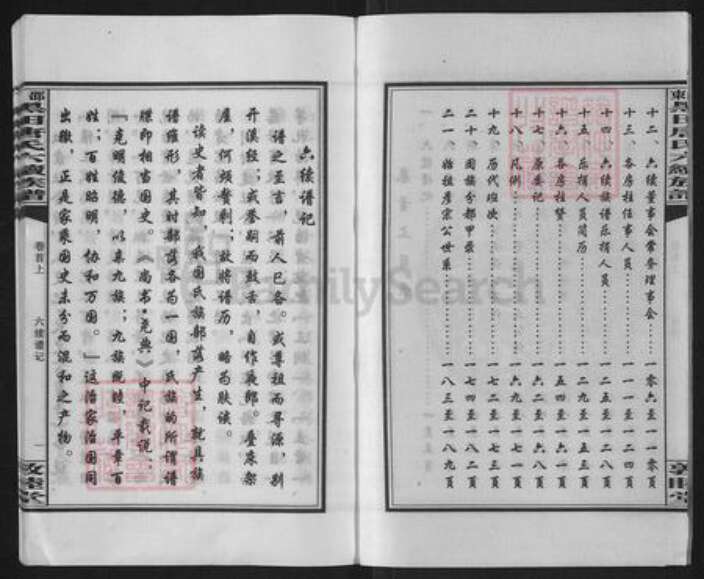 十二、六续董事会常务理事会……一零六至一一零页
十三、各房柱任事人员……一一一至一二四页
十四、六续族谱乐捐人员……一二五至一二八页
十五、乐捐人员简历……一二九至一五三页
十六、各房柱赞……一五四至一六一页
十七、原委记……一六二至一六八页
十八、凡例……一六九至一七一页
十九、历代班次……一七二至一七三页
二十、国族分部甲录……一七四至一八二页
二一、始祖彦宗公世系……一八三至一八九页
敦睦堂
六续谱记
谱之至言，前人已备。或尊祖而寻源，别
开溪径；或荣嗣而鼓舌，自作夜郎。叠床架
屋，何烦赘剩；故将谱历，略为肤谈。
读史者皆知，我国氏族部落产生，就具族
谱雏形，其时部落各为一国，氏族的所谓谱
牒即相当国史。《尚书·尧典》中记载说：
“克明俊德，以亲九族；九族既睦，平章百
姓；百姓昭明，协和万国。”这治家治国同
出辙，正是家乘国史未分而混和之产物。
卷首上
六续谱记
一
敦睦堂
FamilySearch